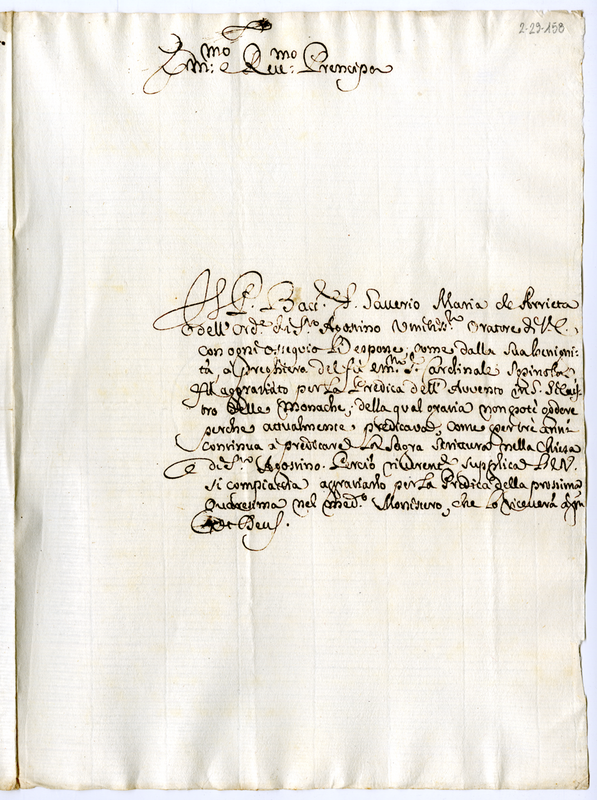 2-29-158
Em.mo e Rev.mo Prencipe
Il P. Bacc. F. Saverio Maria de
dell'Ord.e di S.to Agostino Umiliss.o Oratore di V.E.,
con ogni ossequio li espone, come dalla sua benigni-
tà a preghiera del fù em.mo S. Cardinale Spinola
fù aggraviato per la Predica dell'Avvento in S. Silves-
tro delle Monache, della qual gravia non potè godere
perche attualmente predicava, come per tre anni
continua a predicare la Sagra Scrittura nella Chiesa
di S.to Agostino. Perciò supplica V.E.
si compiaccia agraviarlo per la Predica della prossima
Quaresima nel med.o Monistero, che lo riceverà a gra
Deus.